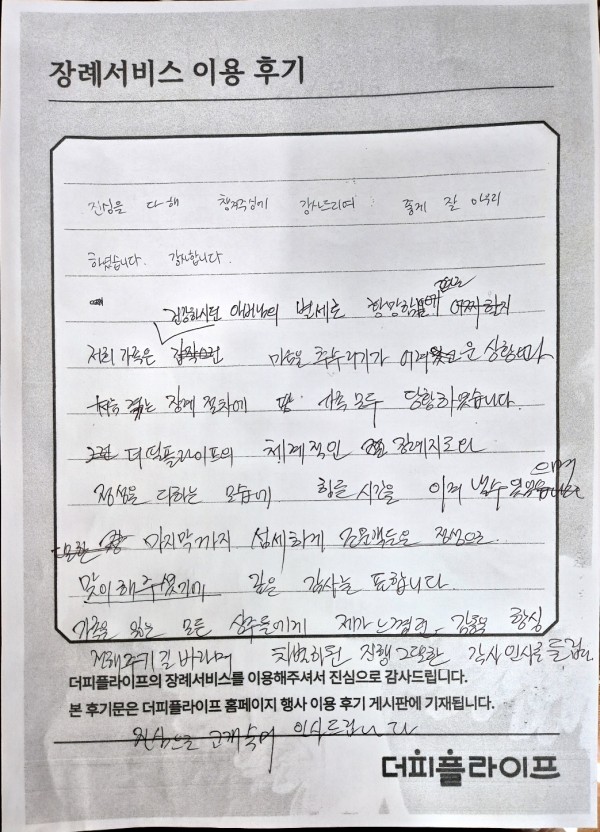 장례서비스 이용 후기
진심을 다해 챙겨주심에 감사드리며 좋게 잘 마무리
하였습니다. 감사합니다.
건강하시던 아버님의 별세로 황망함에
저희 가족은 마음을 추수리기가 어려운 상황
장례 절차에 가족 모두 당황하였습니다.
더피플라이프의 체계적인 장례지도
정성을 다하는 모습에 힘든 시간을 이겨낼수 있었으며
마지막까지 섬세하게 조문객들을 정성으로
맞이해주셨기에 깊은 감사를 표합니다.
가족을 잃는 모든 상주들에게 제가 느꼈던 감동 항상
전해주기길 바라며 진행 감사 인사를
더피플라이프의 장례서비스를 이용해주셔서 진심으로 감사드립니다.
본 후기문은 더피플라이프 홈페이지 행사 이용 후기 게시판에 기재됩니다.
진심으로 고개숙여 인사드립니다
더피플라이프